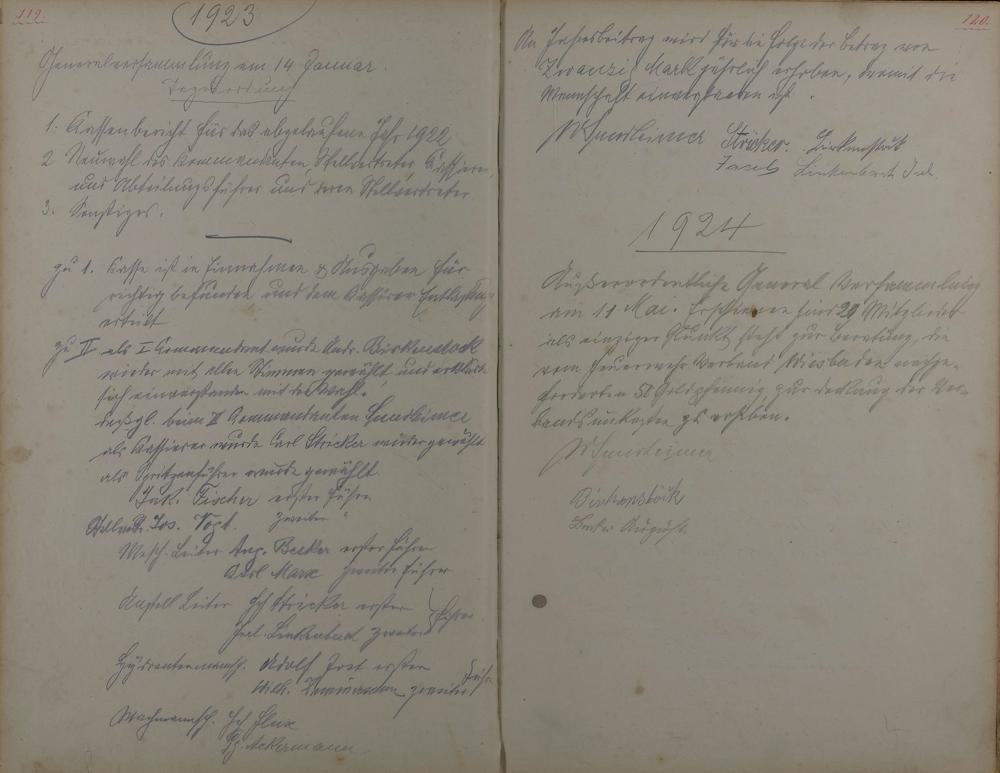 119.
1923
Generalversammlung am 14 Januar.
Tagesordnung
1. Kassenbericht für das abgelaufene Jahr 1922
2 Neuwahl des Kommandanten, Stellvertreter, Kassierer,
und Abteilungsführer und deren Stellvertreter
3. Sonstiges.
zu 1. Kasse ist in Einnahmen & Ausgaben für
richtig befunden und dem Kassierer Entlastung
erteilt
zu II als I Kommandant wurde Andr. Birkenstock
wieder mit allen Stimmen gewählt und erklärte
sich einverstanden mit der Wahl.
desgl. beim II Kommandanten
als Kassierer wurde Carl Stricker wiedergewählt
als Spritzenführer wurde gewählt
Jak. Fischer erster Führer
Stellvertr. Jos. Vogt. zweiter "
Masch. Leiter Aug. Becker erster Führer
Karl Marx zweiter Führer
Leiter Hch Stricker erster
Linkenbach zweiter Führer
Hydrantenmannsch. Adolf Jost erster
Wilh. zweiter Führer
Wachmannsch. Hch
Ackermann
120.
An Jahresbeitrag wird für die Folge der Betrag von
Zwanzig Mark jährlich erhoben, womit die
Mannschaft einverstanden ist.
Stricker. Birkenstock
Linkenbach
1924
Außerordentliche General Versammlung
am 11 Mai. Erschienen sind 29 Mitglieder
als einziger Punkt steht zur Beratung, die
vom Feuerwehr Verband Wiesbaden nachge-
forderten 50 Goldpfennig, zur Deckung der Ver-
bandsunkosten zu erheben.
Birkenstock
August.